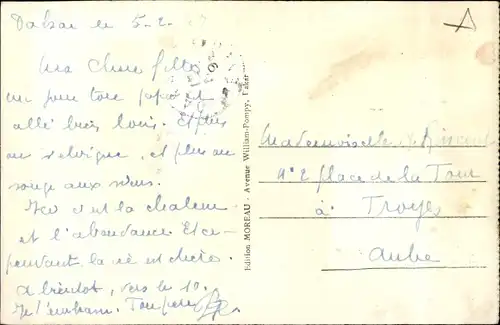 Dakar le 5-2
Ma chère fille
un jour ton papa est
allé très loin. Et plus
on s'éloigne, et plus on
songe aux siens.
Ici c'est la chaleur
et l'abondance. Et ce-
pendant la vie est chère.
A bientôt, vers le 10.
Je t'embrasse. Ton père
Edition MOREAU - Avenue William-Pompy, Dakar
Mademoiselle
place de la Tour
à Troyes
Aube